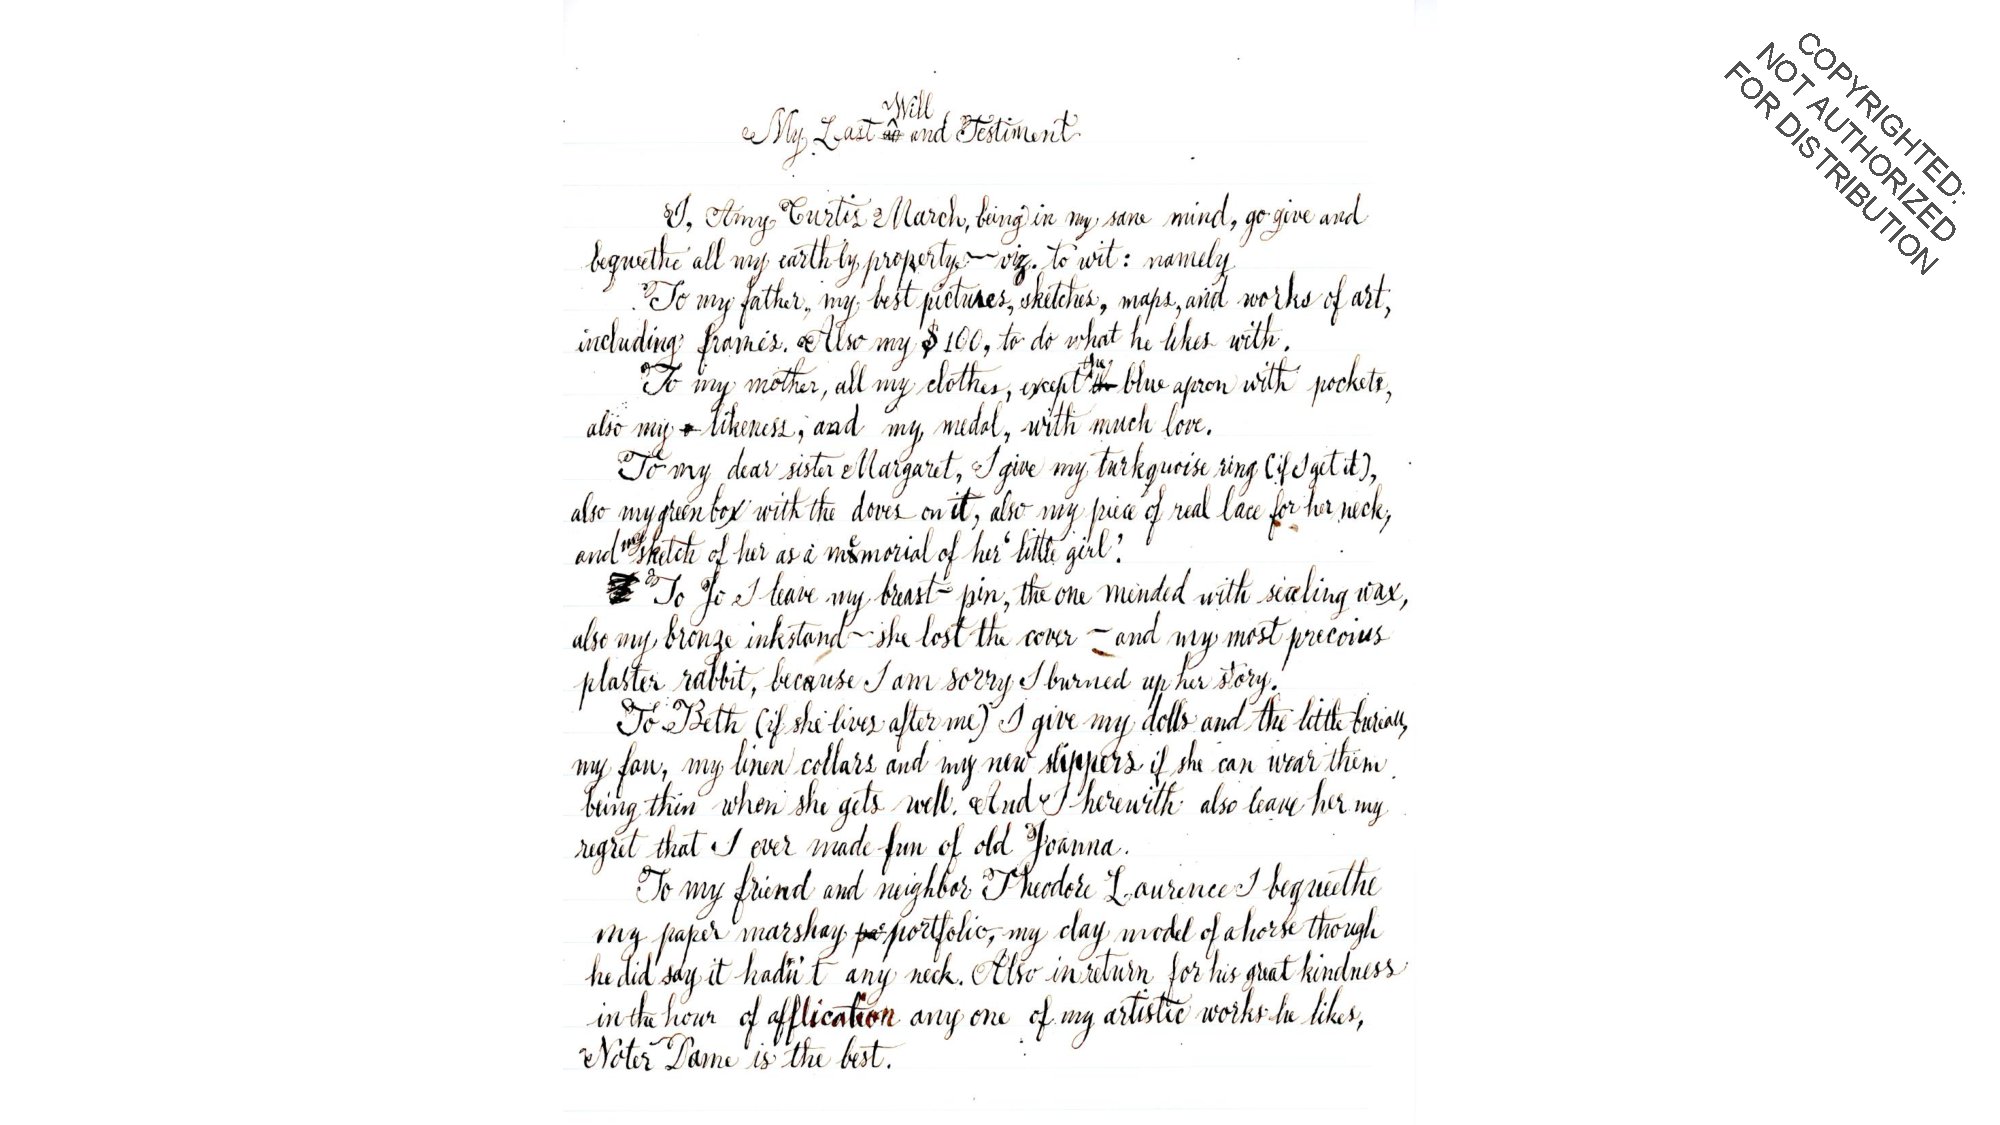 My Last Will and Testiment
I, Amy Curtis March, being in my sane mind, go give and
bequethe all my earthly property — viz. to wit: namely
To my father, my best pictures, sketches, maps, and works of art,
including frames. Also my $100, to do what he likes with.
To my mother, all my clothes, except the blue apron with pockets,
also my likeness, and my medal, with much love.
To my dear sister Margaret, I give my turkquoise ring (if I get it),
also my green box with the doves on it, also my piece of real lace for her neck,
and my sketch of her as a memorial of her 'little girl'.
To Jo I leave my breast-pin, the one mended with sealing wax,
also my bronze inkstand — she lost the cover — and my most precoius
plaster rabbit, because I am sorry I burned up her story.
To Beth (if she lives after me) I give my dolls and the little bureau,
my fan, my linen collars and my new slippers if she can wear them
being thin when she gets well. And I herewith also leave her my
regret that I ever made fun of old Joanna.
To my friend and neighbor Theodore Laurence I bequeethe
my paper marshay portfolio, my clay model of a horse though
he did say it hadn't any neck. Also in return for his great kindness
in the hour of afflication any one of my artistic works he likes,
Noter Dame is the best.
COPYRIGHTED:
NOT AUTHORIZED
FOR DISTRIBUTION